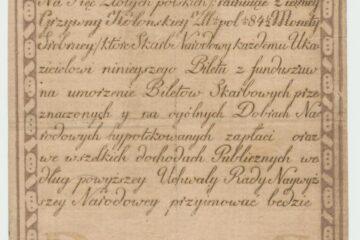 Na Pięć Złotych polskich, rachuiąc z iedney
Grzywny Kolońskiey Złł: pol: 84½ Monety
Srebrney, które Skarb Narodowy każdemu Uka-
zicielowi ninieyszego Biletu z funduszów
na umorzenie Biletów Skarbowych prze-
znaczonych y na ogólnych Dobrach Na-
rodowych hypotekowanych zapłaci oraz
we wszelkich dochodach Publicznych we-
dług powyższey Uchwały Rady Naywyż-
szey Narodowey przyimować będzie